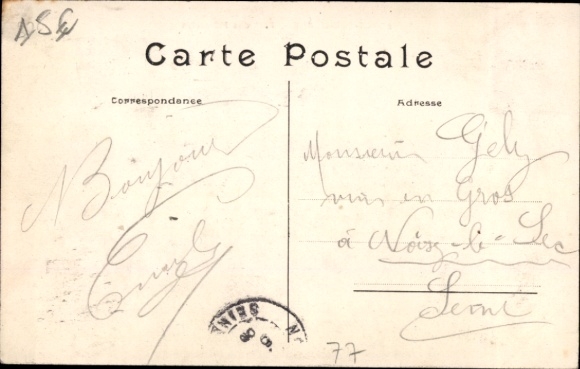 Carte Postale
Correspondance
Adresse
Bonjour
Monsieur Gely
vins en Gros
à Noisy-le-Sec
Seine
77